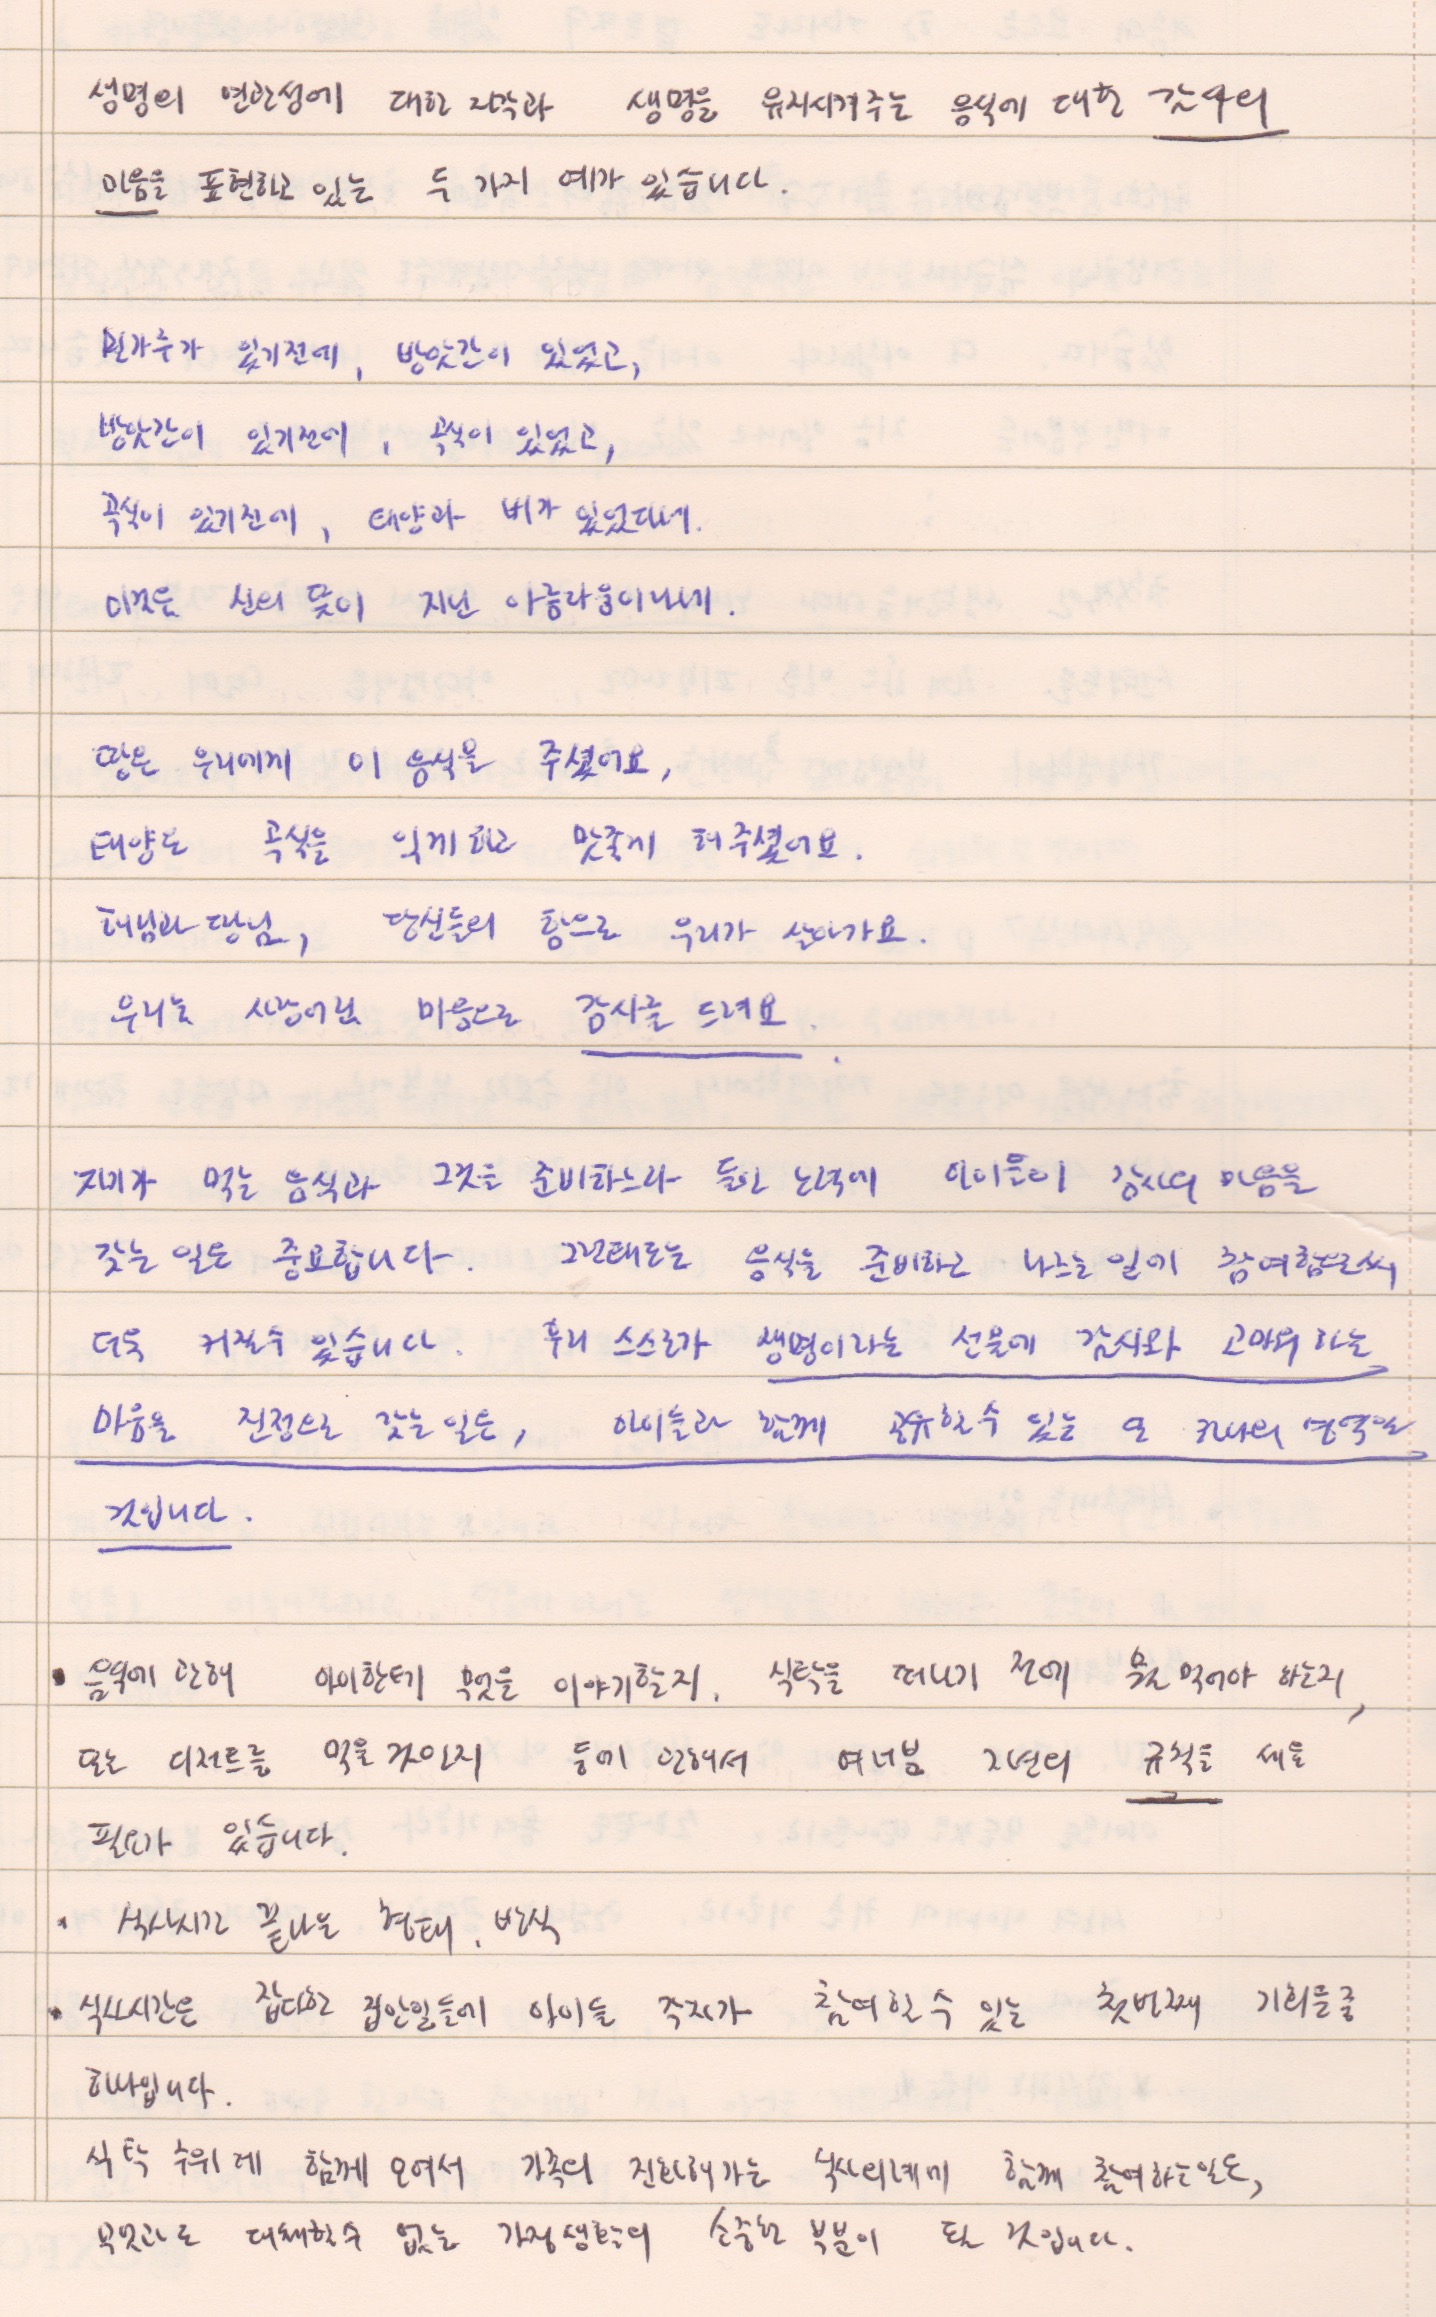 생명의 연관성에 대한 지각과 생명을 유지시켜주는 음식에 대한 감사의
마음을 표현하고 있는 두 가지 예가 있습니다.
밀가루가 있기전에, 방앗간이 있었고,
방앗간이 있기전에, 곡식이 있었고,
곡식이 있기전에, 태양과 비가 있었다네.
이것은 신의 뜻이 지닌 아름다움이라네.
땅은 우리에게 이 음식을 주셨어요,
태양은 곡식을 익게하고 맛있게 해주셨어요.
해님과 땅님, 당신들의 힘으로 우리가 살아가요.
우리는 사랑어린 마음으로 감사를 드려요.
자기가 먹는 음식과 그것을 준비하느라 들인 노력에 아이들이 감사의 마음을
갖는 일은 중요합니다. 그런태도는 음식을 준비하고 나르는일에 참여함으로써
더욱 커질수 있습니다. 우리 스스로가 생명이라는 선물에 감사와 고마워 하는
마음을 진정으로 갖는일은, 아이들과 함께 공유할수 있는 또 하나의 영역일
것입니다.
• 음식에 관해 아이한테 무엇을 이야기할지, 식탁을 떠나기 전에 무엇 먹어야 하는지,
또는 디저트를 먹을것인지 등에 관해서 여러분 자신의 규칙을 세울
필요가 있습니다.
• 식사시간 끝나는 형태, 방식
• 식사시간은 잡다한 집안일들에 아이들 각자가 참여할수 있는 첫번째 기회들중
하나입니다.
식탁 주위에 함께 모여서 가족의 진화해가는 식사의례에 함께 참여하는일은,
무엇과도 대체할수 없는 가정생활의 소중한 부분이 될 것입니다.